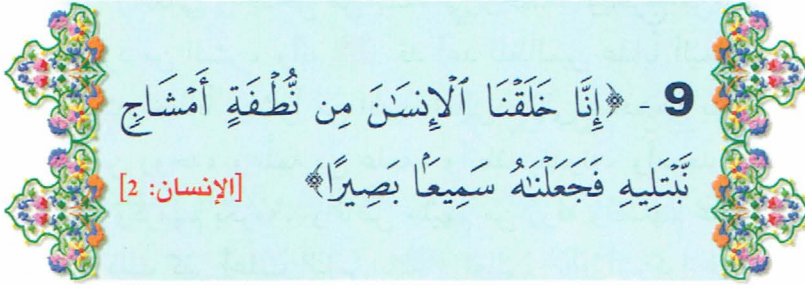 9 - ﴿إِنَّا خَلَقْنَا ٱلْإِنسَٰنَ مِن نُّطْفَةٍ أَمْشَاجٍ
نَّبْتَلِيهِ فَجَعَلْنَٰهُ سَمِيعًۢا بَصِيرًا﴾ [الإنسان: 2]